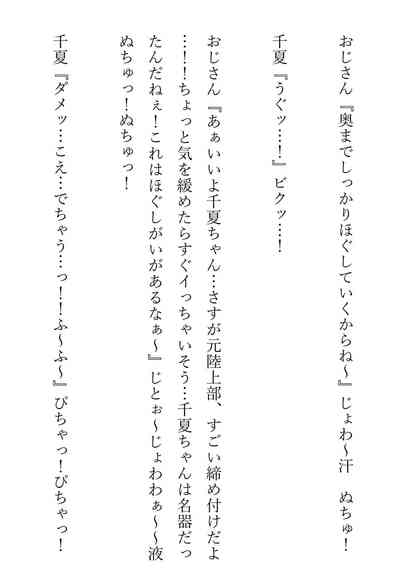 おじさん『奥までしっかりほぐしていくからね〜』じょわ〜汗　ぬちゅ！
千夏『うぐッ…！』ビクッ…！
おじさん『あぁいいよ千夏ちゃん…さすが元陸上部、すごい締め付けだよ
…！！ちょっと気を緩めたらすぐイっちゃいそう…千夏ちゃんは名器だっ
たんだねぇ！これはほぐしがいがあるなぁ〜』じとぉ〜じょわわぁ〜〜液
ぬちゅっ！ぬちゅっ！
千夏『ダメッ…こえ…でちゃう…っ！！ふ〜ふ〜』ぴちゃっ！ぴちゃっ！